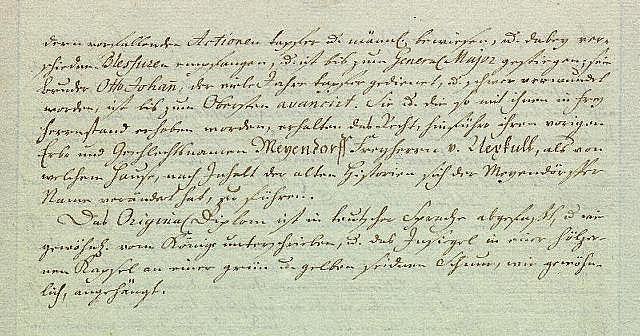 dern vorfallenden Actionen tapfer u. männl. bewiesen, u. dabey ver-
schiedene Blessuren empfangen, u. ist bis zum General Major gestiegen; sein
Bruder Otto Johann, der viele Jahre tapfer gedienet, u. schwer verwundet
worden, ist bis zum Obersten avancirt. Sie u. die so mit ihnen in frey
herrnstand erhoben worden, erhalten das Recht, hinführo ihren vorigen
Erb- und Geschlechtsnamen Meyendorff Freyherren v. Uexkull, als von
welchem Hause, nach Inhalt der alten Historien sich der Meyendorffsche
Name verändert hat, zu führen.
Das Original Diplom ist in teutscher Sprache abgefaßt, u. wie
gewöhnl. vom Könige unterschrieben, u. das Insiegel in einer hölzer-
nen Kapsel an einer grün u. gelben seidnen Schnur, wie gewöhn-
lich, angehängt.